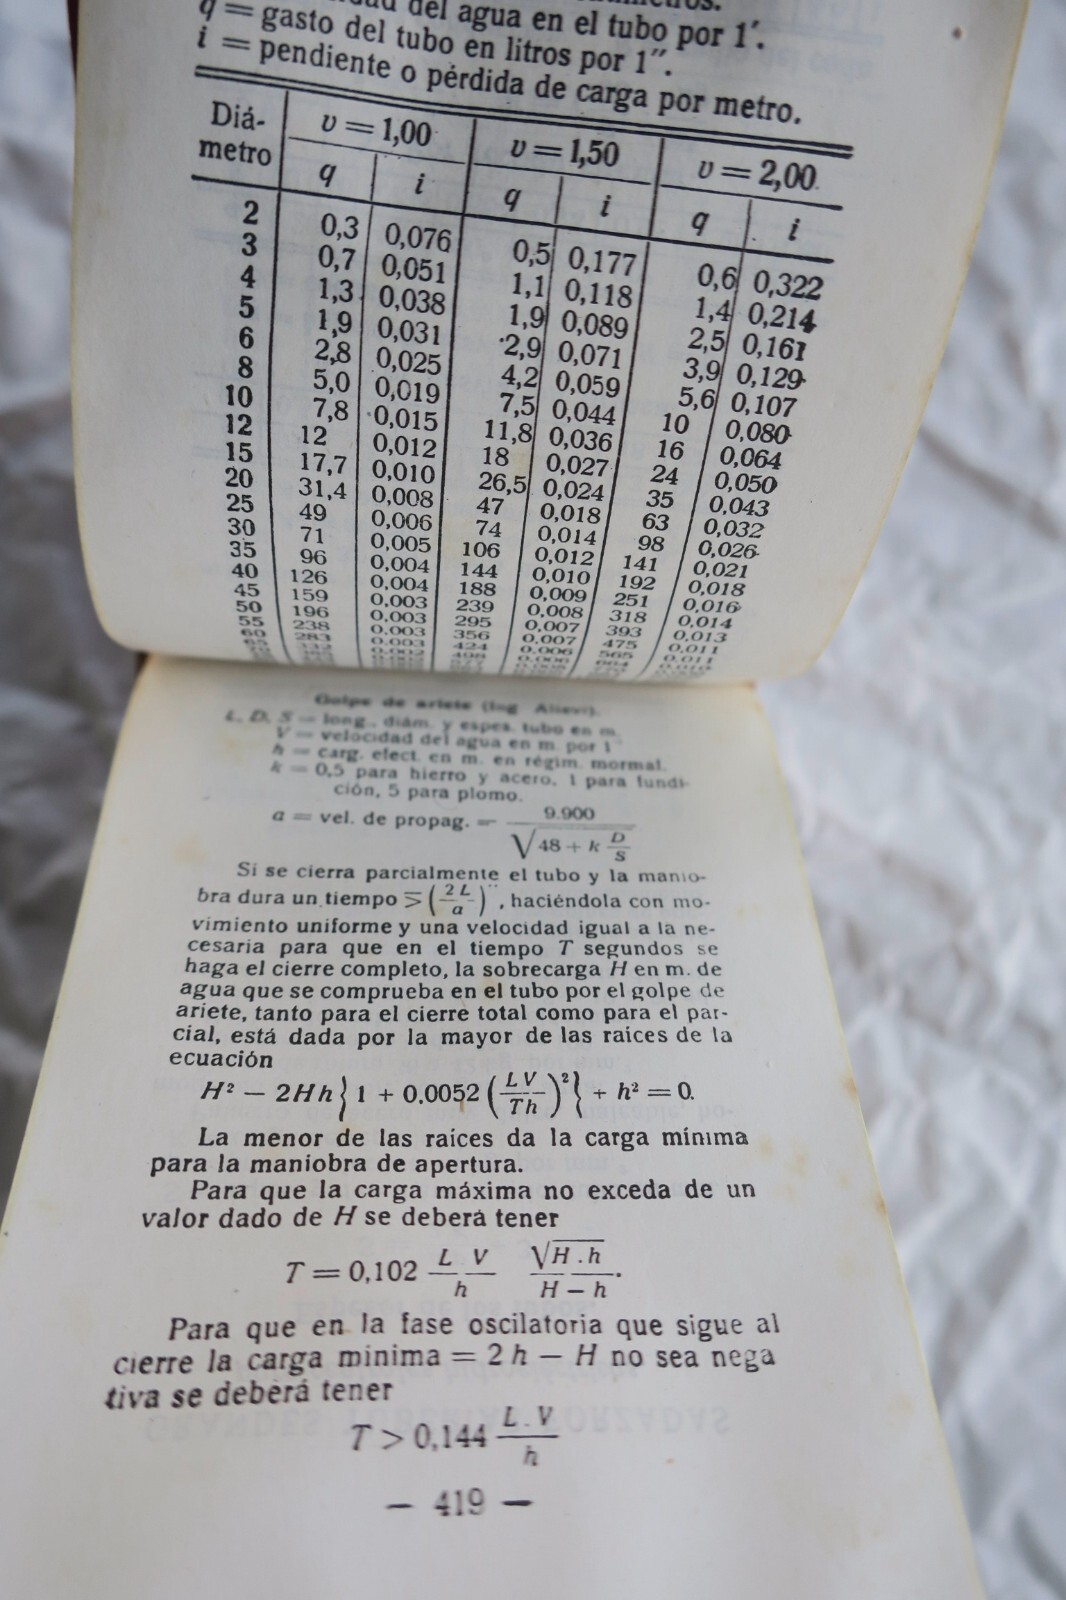 del agua en el tubo por 1'.
q = gasto del tubo en litros por 1".
i = pendiente o pérdida de carga por metro.
Diá-metro | v = 1,00 | v = 1,50 | v = 2,00.
q | i | q | i | q | i
2 | 0,3 | 0,076 | 0,5 | 0,177 | 0,6 | 0,322
3 | 0,7 | 0,051 | 1,1 | 0,118 | 1,4 | 0,214
4 | 1,3 | 0,038 | 1,9 | 0,089 | 2,5 | 0,161
5 | 1,9 | 0,031 | 2,9 | 0,071 | 3,9 | 0,129
6 | 2,8 | 0,025 | 4,2 | 0,059 | 5,6 | 0,107
8 | 5,0 | 0,019 | 7,5 | 0,044 | 10 | 0,080
10 | 7,8 | 0,015 | 11,8 | 0,036 | 16 | 0,064
12 | 12 | 0,012 | 18 | 0,027 | 24 | 0,050
15 | 17,7 | 0,010 | 26,5 | 0,024 | 35 | 0,043
20 | 31,4 | 0,008 | 47 | 0,018 | 63 | 0,032
25 | 49 | 0,006 | 74 | 0,014 | 98 | 0,026
30 | 71 | 0,005 | 106 | 0,012 | 141 | 0,021
35 | 96 | 0,004 | 144 | 0,010 | 192 | 0,018
40 | 126 | 0,004 | 188 | 0,009 | 251 | 0,016
45 | 159 | 0,003 | 239 | 0,008 | 318 | 0,014
50 | 196 | 0,003 | 295 | 0,007 | 393 | 0,013
55 | 238 | 0,003 | 356 | 0,007 | 475 | 0,011
60 | 283 | 0,002 | 424 | 0,006 | 565 | 0,011
Golpe de ariete (Ing Alievi).
L, D, S = long., diám. y espes. tubo en m.
V = velocidad del agua en m. por 1"
h = carg. efect. en m. en régim. mormal.
k = 0,5 para hierro y acero, 1 para fundi-
ción, 5 para plomo.
a = vel. de propag. = 9.900 / √(48 + k D/S)
Si se cierra parcialmente el tubo y la manio-
bra dura un tiempo ⋝ (2 L / a)", haciéndola con mo-
vimiento uniforme y una velocidad igual a la ne-
cesaria para que en el tiempo T segundos se
haga el cierre completo, la sobrecarga H en m. de
agua que se comprueba en el tubo por el golpe de
ariete, tanto para el cierre total como para el par-
cial, está dada por la mayor de las raices de la
ecuación
H² − 2Hh } 1 + 0,0052 (LV / Th)² { + h² = 0.
La menor de las raíces da la carga mínima
para la maniobra de apertura.
Para que la carga máxima no exceda de un
valor dado de H se deberá tener
T = 0,102 L V / h √H . h / H − h.
Para que en la fase oscilatoria que sigue al
cierre la carga mínima = 2 h − H no sea nega
tiva se deberá tener
T > 0,144 L . V / h
— 419 —